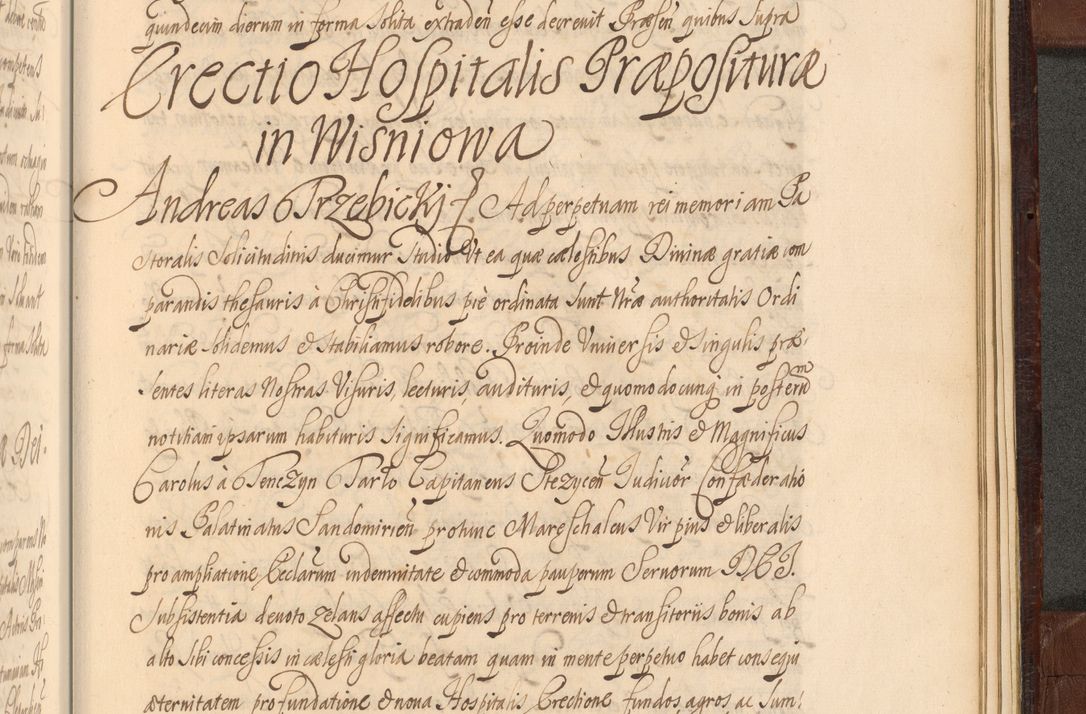 quindecim dierum in forma solita extraden̄ esse decrevit Præsen̄ quibus supra
Erectio Hospitalis Præposituræ
in Wisniowa
Andreas Trzebicki Ad perpetuam rei memoriam Pa
storalis solicitudinis ducimur studio Ut ea quæ cælestibus Divinæ gratiæ com
parandis thesauris à Christifidelibus piè ordinata sunt Nr̃æ authoritatis Ordi
nariæ solidemus et stabiliamus robore. Proinde Universis et singulis præ-
sentes literas Nostras Visuris, lecturis, audituris, et quomodocunq in posterum
notitiam ipsarum habituris significamus. Quomodo Illustris et Magnificus
Carolus à Tenczyn Tarło Capitaneus Stezycen̄ Judicior̃ Confæderatio
nis Palatinatus Sandomirien̄ protunc Mareschalcus Vir pius et liberalis
pro ampliatione Eeclarum indemnitate et commoda pauperum Servorum D.C.J.
subsistentia devoto zelans affectu cupiens pro terrenis et transitoriis bonis ab
alto sibi concessis in cælesti gloria beatam quam in mente perpetuo habet consequi
æternitatem pro fundatione et nova Hospitalis Erectione fundos, agros ac sum